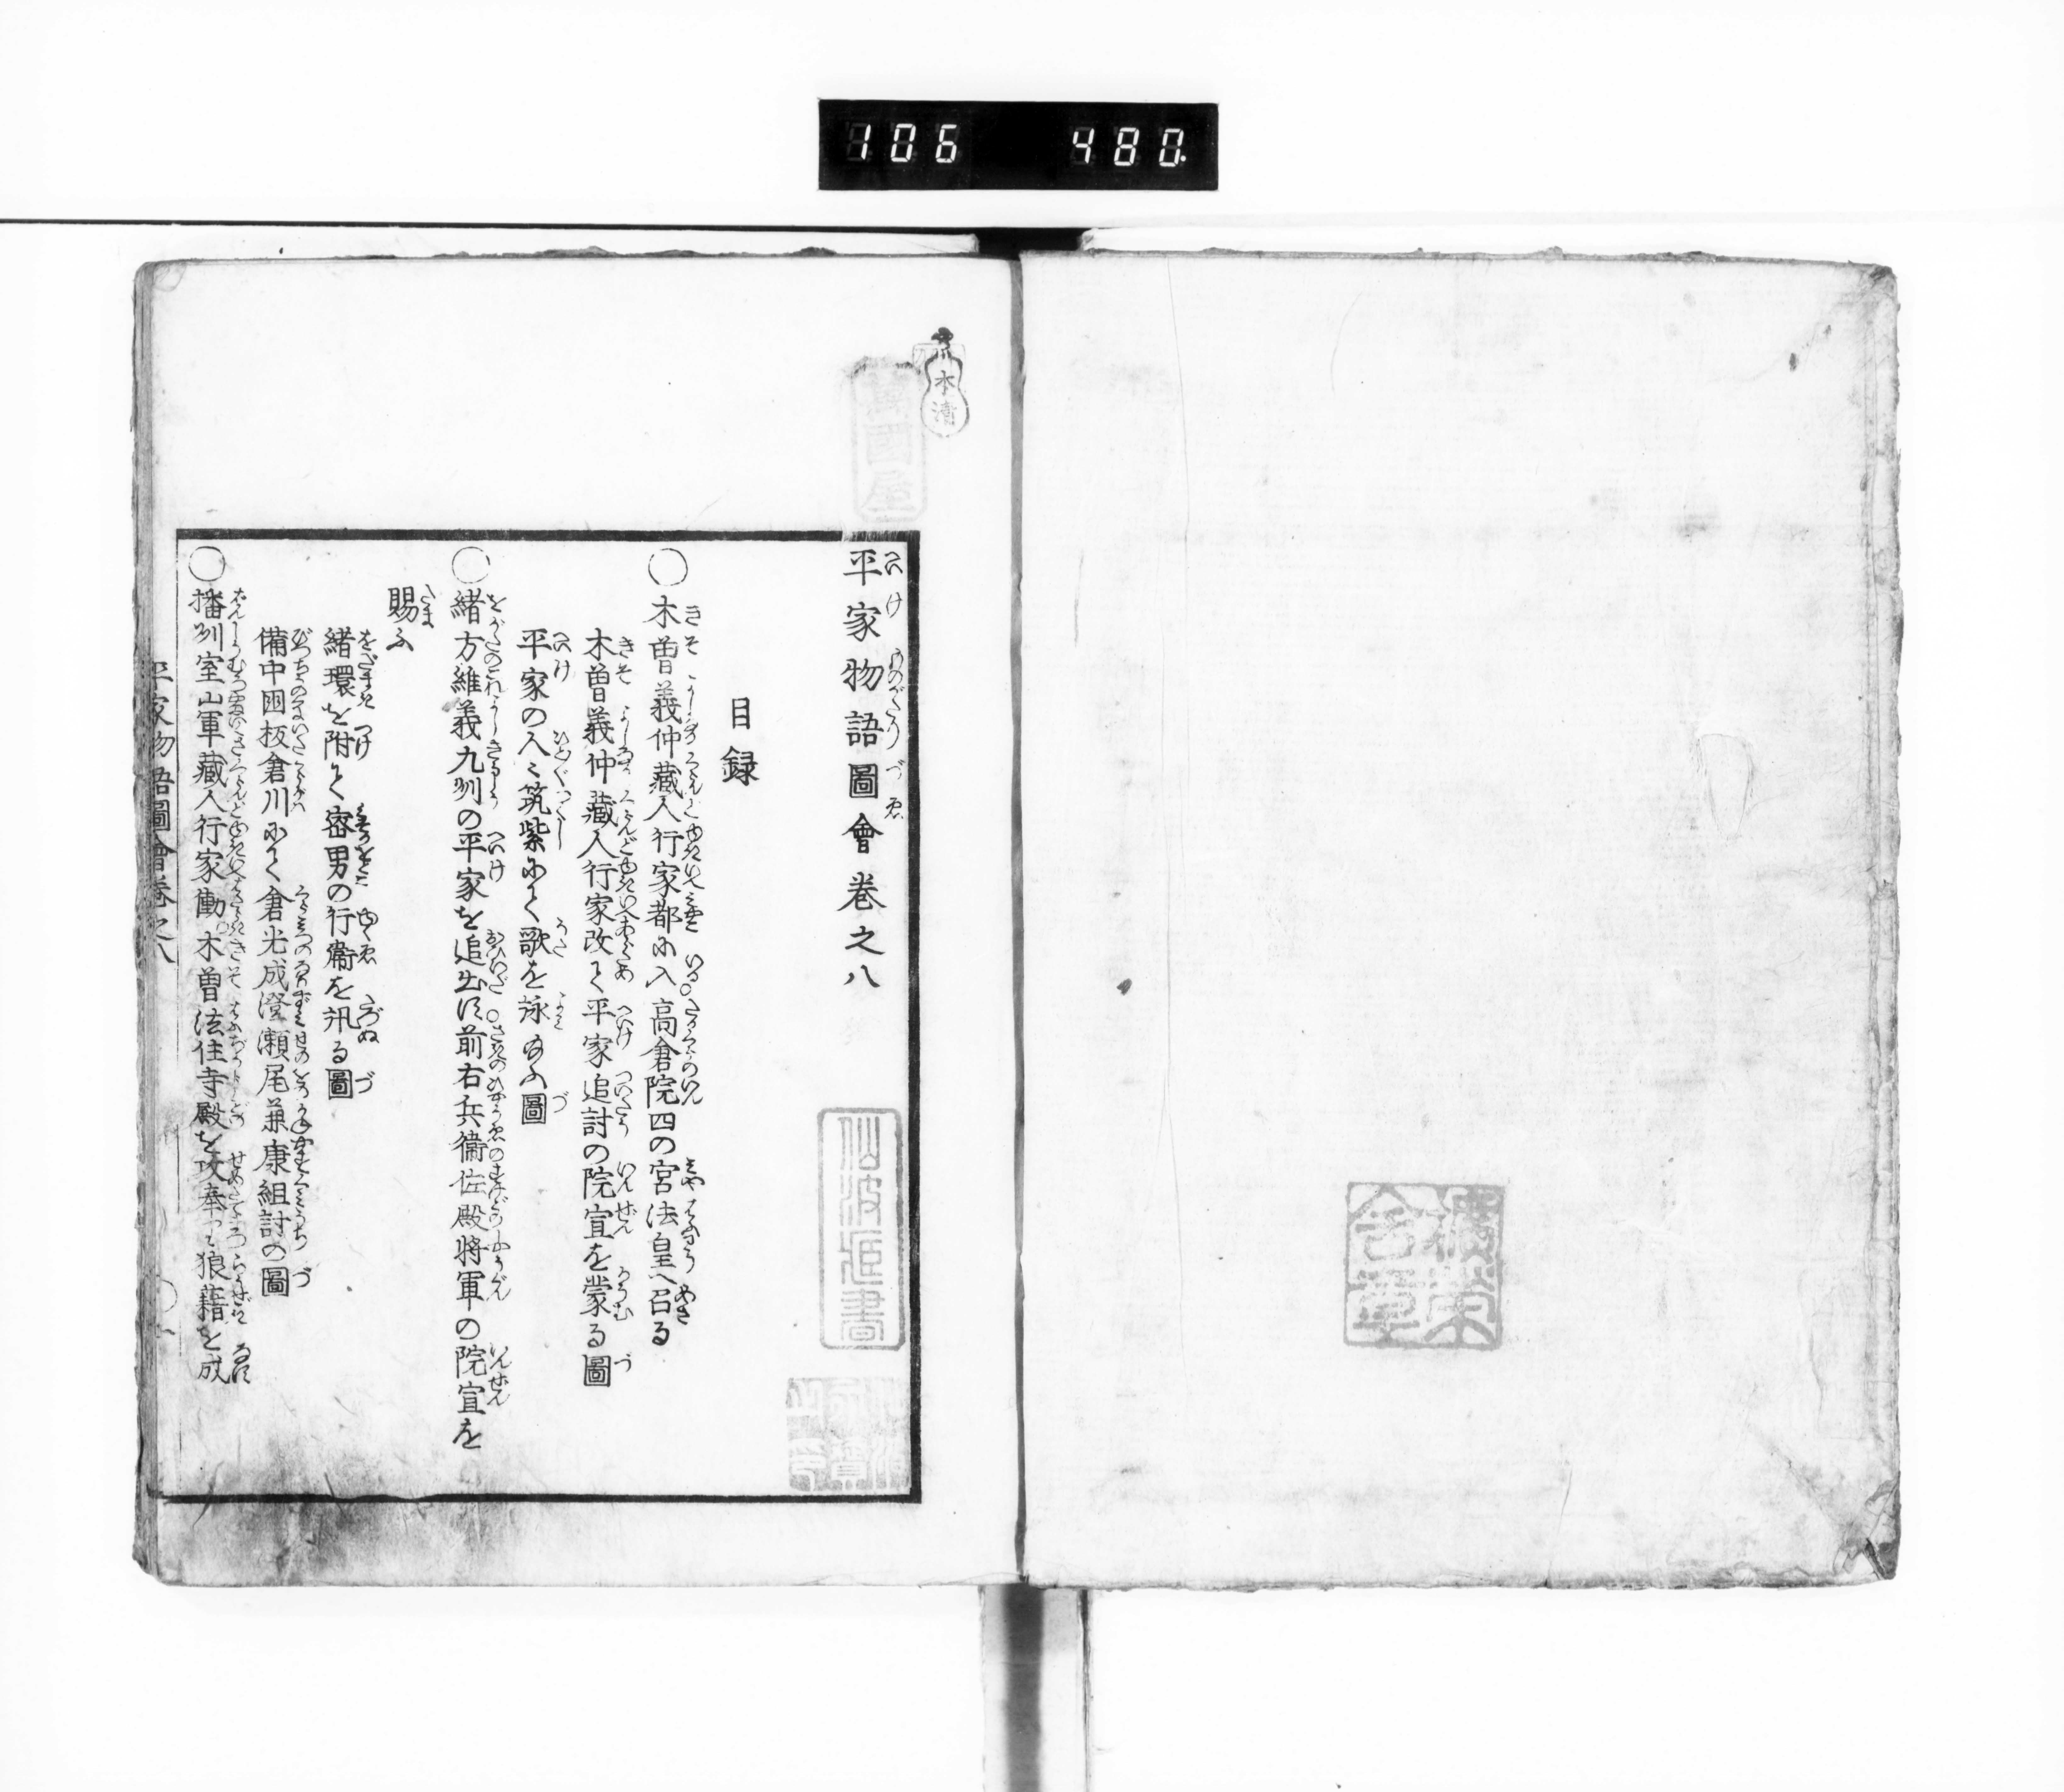 106 480
本清
國屋
平家物語圖會巻之八
目録
○木曽義仲藏人行家都に入○高倉院四の宮法皇へ召る
木曽義仲藏人行家改て平家追討の院宣を蒙る圖
平家の人々筑紫にて歌を詠給ふ圖
○緒方維義九州の平家を追出す○前右兵衞佐殿將軍の院宣を
賜ふ
緒環を附て密男の行衞を訊る圖
備中国板倉川にて倉光成澄瀬尾兼康組討の圖
○播州室山軍藏人行家働○木曽法住寺殿を攻奉つて狼藉を成
平家物語圖會巻之八